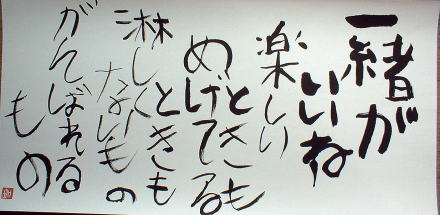 一緒が
いいね
楽しい
ときも
めげてる
ときも
淋しく
ないもの
がんばれる
もの